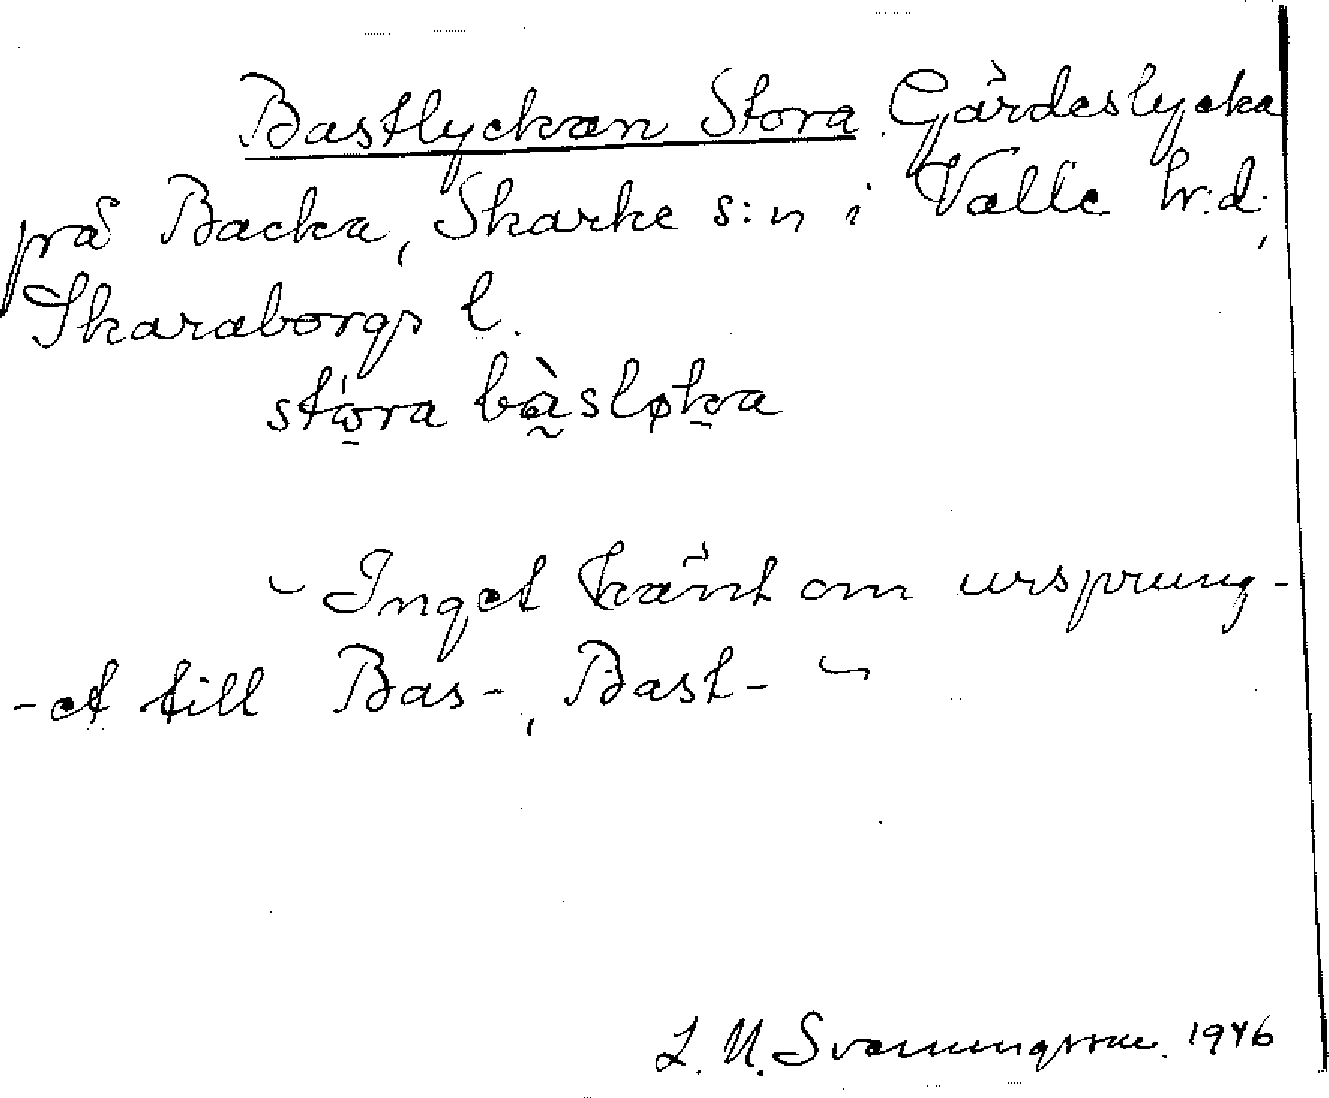 Bastlyckan Stora Gärdeslycka
på Backa, Skarke s:n i Valle hr.d.,
Skaraborgs l.
stọ̄ra bàsløka
~ Inget känt om ursprung-
-et till Bas-, Bast- ~
L. M. Svenungsson. 1946